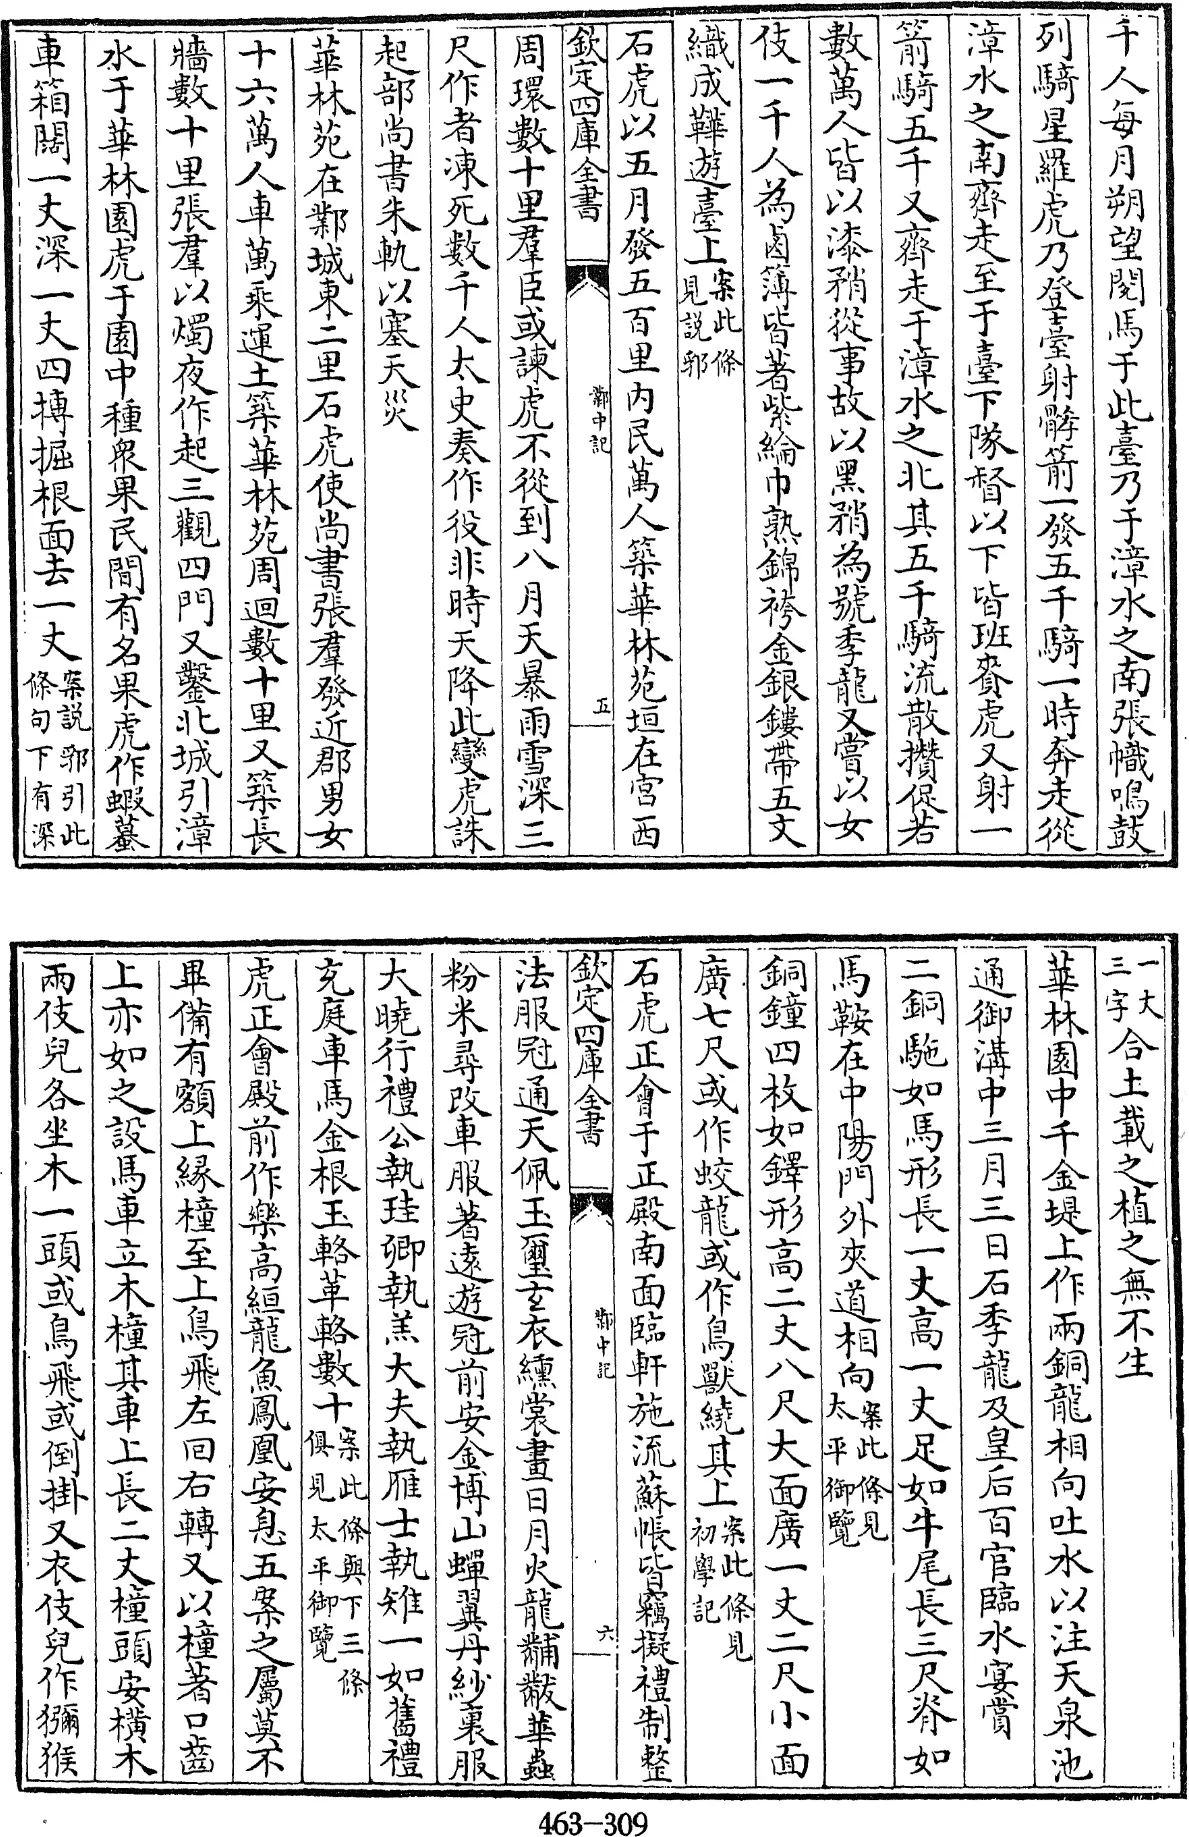 千人每月朔望閱馬于此臺乃于漳水之南張幟鳴鼓
列騎星羅虎乃登臺射髇箭一發五千騎一時奔走從
漳水之南齊走至于臺下隊督以下皆班賚虎又射一
箭騎五千又齊走于漳水之北其五千騎流散攢促若
數萬人皆以漆矟從事故以黑矟為號季龍又嘗以女
伎一千人為鹵簿皆著紫綸巾熟錦袴金銀鏤帶五文
織成鞾遊臺上案此條
見説郛
石虎以五月發五百里内民萬人築華林苑垣在宫西
欽定四庫全書
鄴中記
五
周環數十里羣臣或諫虎不從到八月天暴雨雪深三
尺作者凍死數千人太史奏作役非時天降此變虎誅
起部尚書朱軌以塞天災
華林苑在鄴城東二里石虎使尚書張羣發近郡男女
十六萬人車萬乘運土築華林苑周迴數十里又築長
牆數十里張羣以燭夜作起三觀四門又鑿北城引漳
水于華林園虎于園中種衆果民間有名果虎作蝦蟇
車箱闊一丈深一丈四摶掘根面去一丈案説郛引此
條句下有深
一丈
三字合土載之植之無不生
華林園中千金堤上作兩銅龍相向吐水以注天泉池
通御溝中三月三日石季龍及皇后百官臨水宴賞
二銅駞如馬形長一丈高一丈足如牛尾長三尺脊如
馬鞍在中陽門外夾道相向案此條見
太平御覽
銅鐘四枚如鐸形高二丈八尺大面廣一丈二尺小面
廣七尺或作蛟龍或作鳥獸繞其上案此條見
初學記
石虎正會于正殿南面臨軒施流蘇帳皆竊擬禮制整
欽定四庫全書
鄴中記
六
法服冠通天佩玉璽玄衣纁裳畫日月火龍黼黻華蟲
粉米尋改車服著遠遊冠前安金博山蟬翼丹紗裏服
大曉行禮公執珪卿執羔大夫執雁士執雉一如舊禮
充庭車馬金根玉輅革輅數十案此條與下三條
俱見太平御覽
虎正會殿前作樂高絙龍魚鳳凰安息五案之屬莫不
畢備有額上緣橦至上鳥飛左回右轉又以橦著口齒
上亦如之設馬車立木橦其車上長二丈橦頭安橫木
兩伎兒各坐木一頭或鳥飛或倒掛又衣伎兒作獼猴
463-309